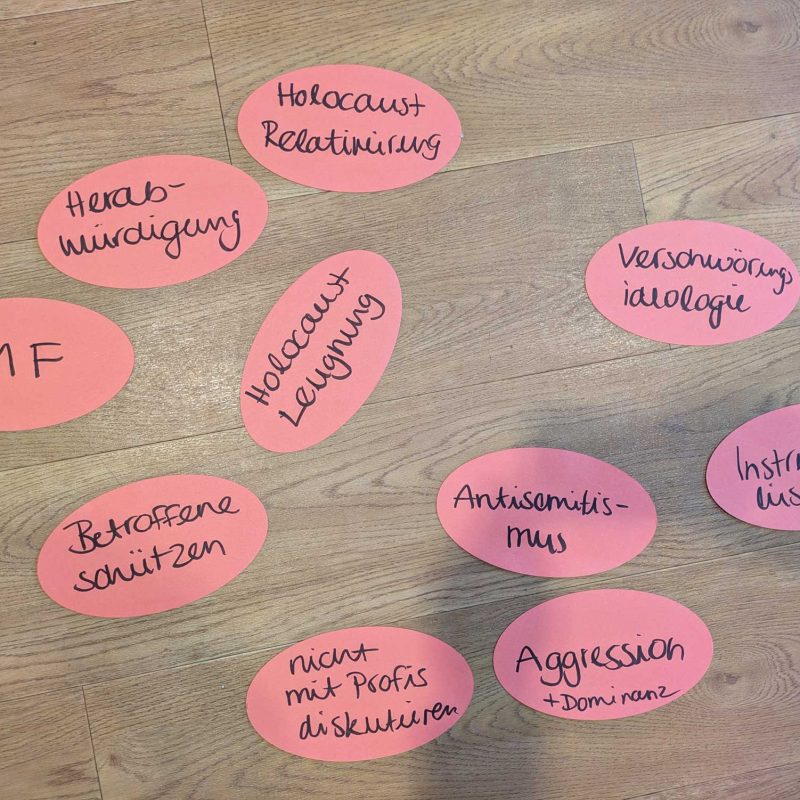 Holocaust
Relativierung
Herab-
würdigung
Verschwörungs
ideologie
Holocaust
Leugnung
MF
Betroffene
schützen
Antisemitis-
mus
nicht
mit Profis
diskutieren
Aggression
+Dominanz